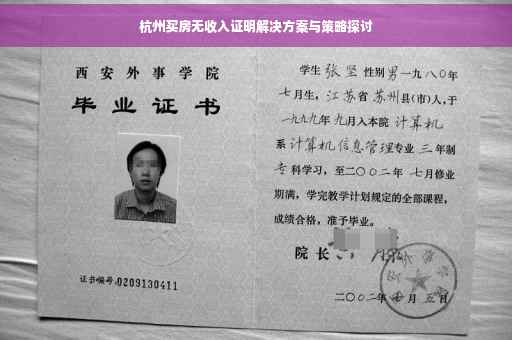 杭州买房无收入证明解决方案与策略探讨
西安外事学院
毕业证书
证书编号:0209130411
学生张坚性别男一九八〇年
七月生,江苏省苏州县(市)人,于
一九九九年九月入本院计算机
系计算机信息管理专业三年制
专科学习,至二〇〇二年七月修业
期满,学完教学计划规定的全部课程,
成绩合格,准予毕业。
院长
二〇〇二年七月五日